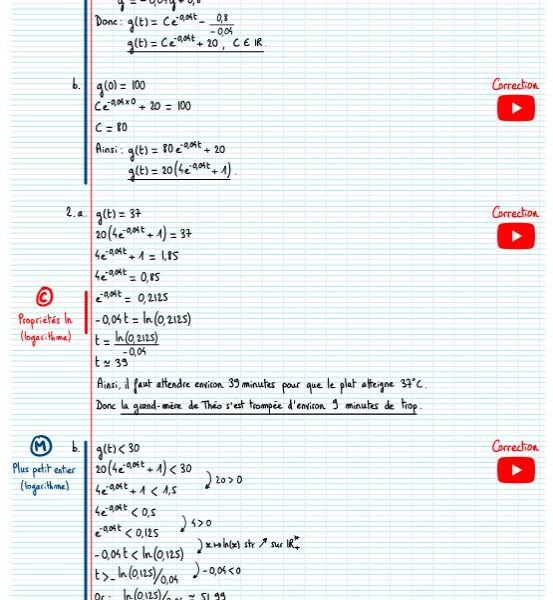 y' = -0,04y + 0,8
Donc : g(t) = Ce^-0,04t - 0,8/-0,04
g(t) = Ce^-0,04t + 20, C ∈ IR.
b. g(0) = 100
Correction
Ce^-0,04×0 + 20 = 100
C = 80
Ainsi : g(t) = 80e^-0,04t + 20
g(t) = 20(4e^-0,04t + 1).
2.a. g(t) = 37
Correction
20(4e^-0,04t + 1) = 37
4e^-0,04t + 1 = 1,85
4e^-0,04t = 0,85
C
e^-0,04t = 0,2125
Propriétés ln
(logarithme)
-0,04t = ln(0,2125)
t = ln(0,2125)/-0,04
t ≃ 39
Ainsi, il faut attendre environ 39 minutes pour que le plat atteigne 37°C.
Donc la grand-mère de Théo s'est trompée d'environ 9 minutes de trop.
M
Plus petit entier
(logarithme)
b. g(t) < 30
Correction
20(4e^-0,04t + 1) < 30
20 > 0
4e^-0,04t + 1 < 1,5
4e^-0,04t < 0,5
4 > 0
e^-0,04t < 0,125
x ↦ ln(x) str ↗ sur IR*+
-0,04t < ln(0,125)
-0,04 < 0
t > - ln(0,125)/0,04
Or : - ln(0,125)/0,04 ≃ 51,99